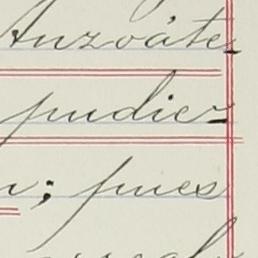 Anzoáte-
pudie-
; pues